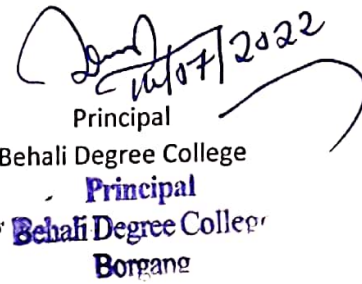 07/2022
Principal
Behali Degree College
Principal
Behali Degree
Borgang